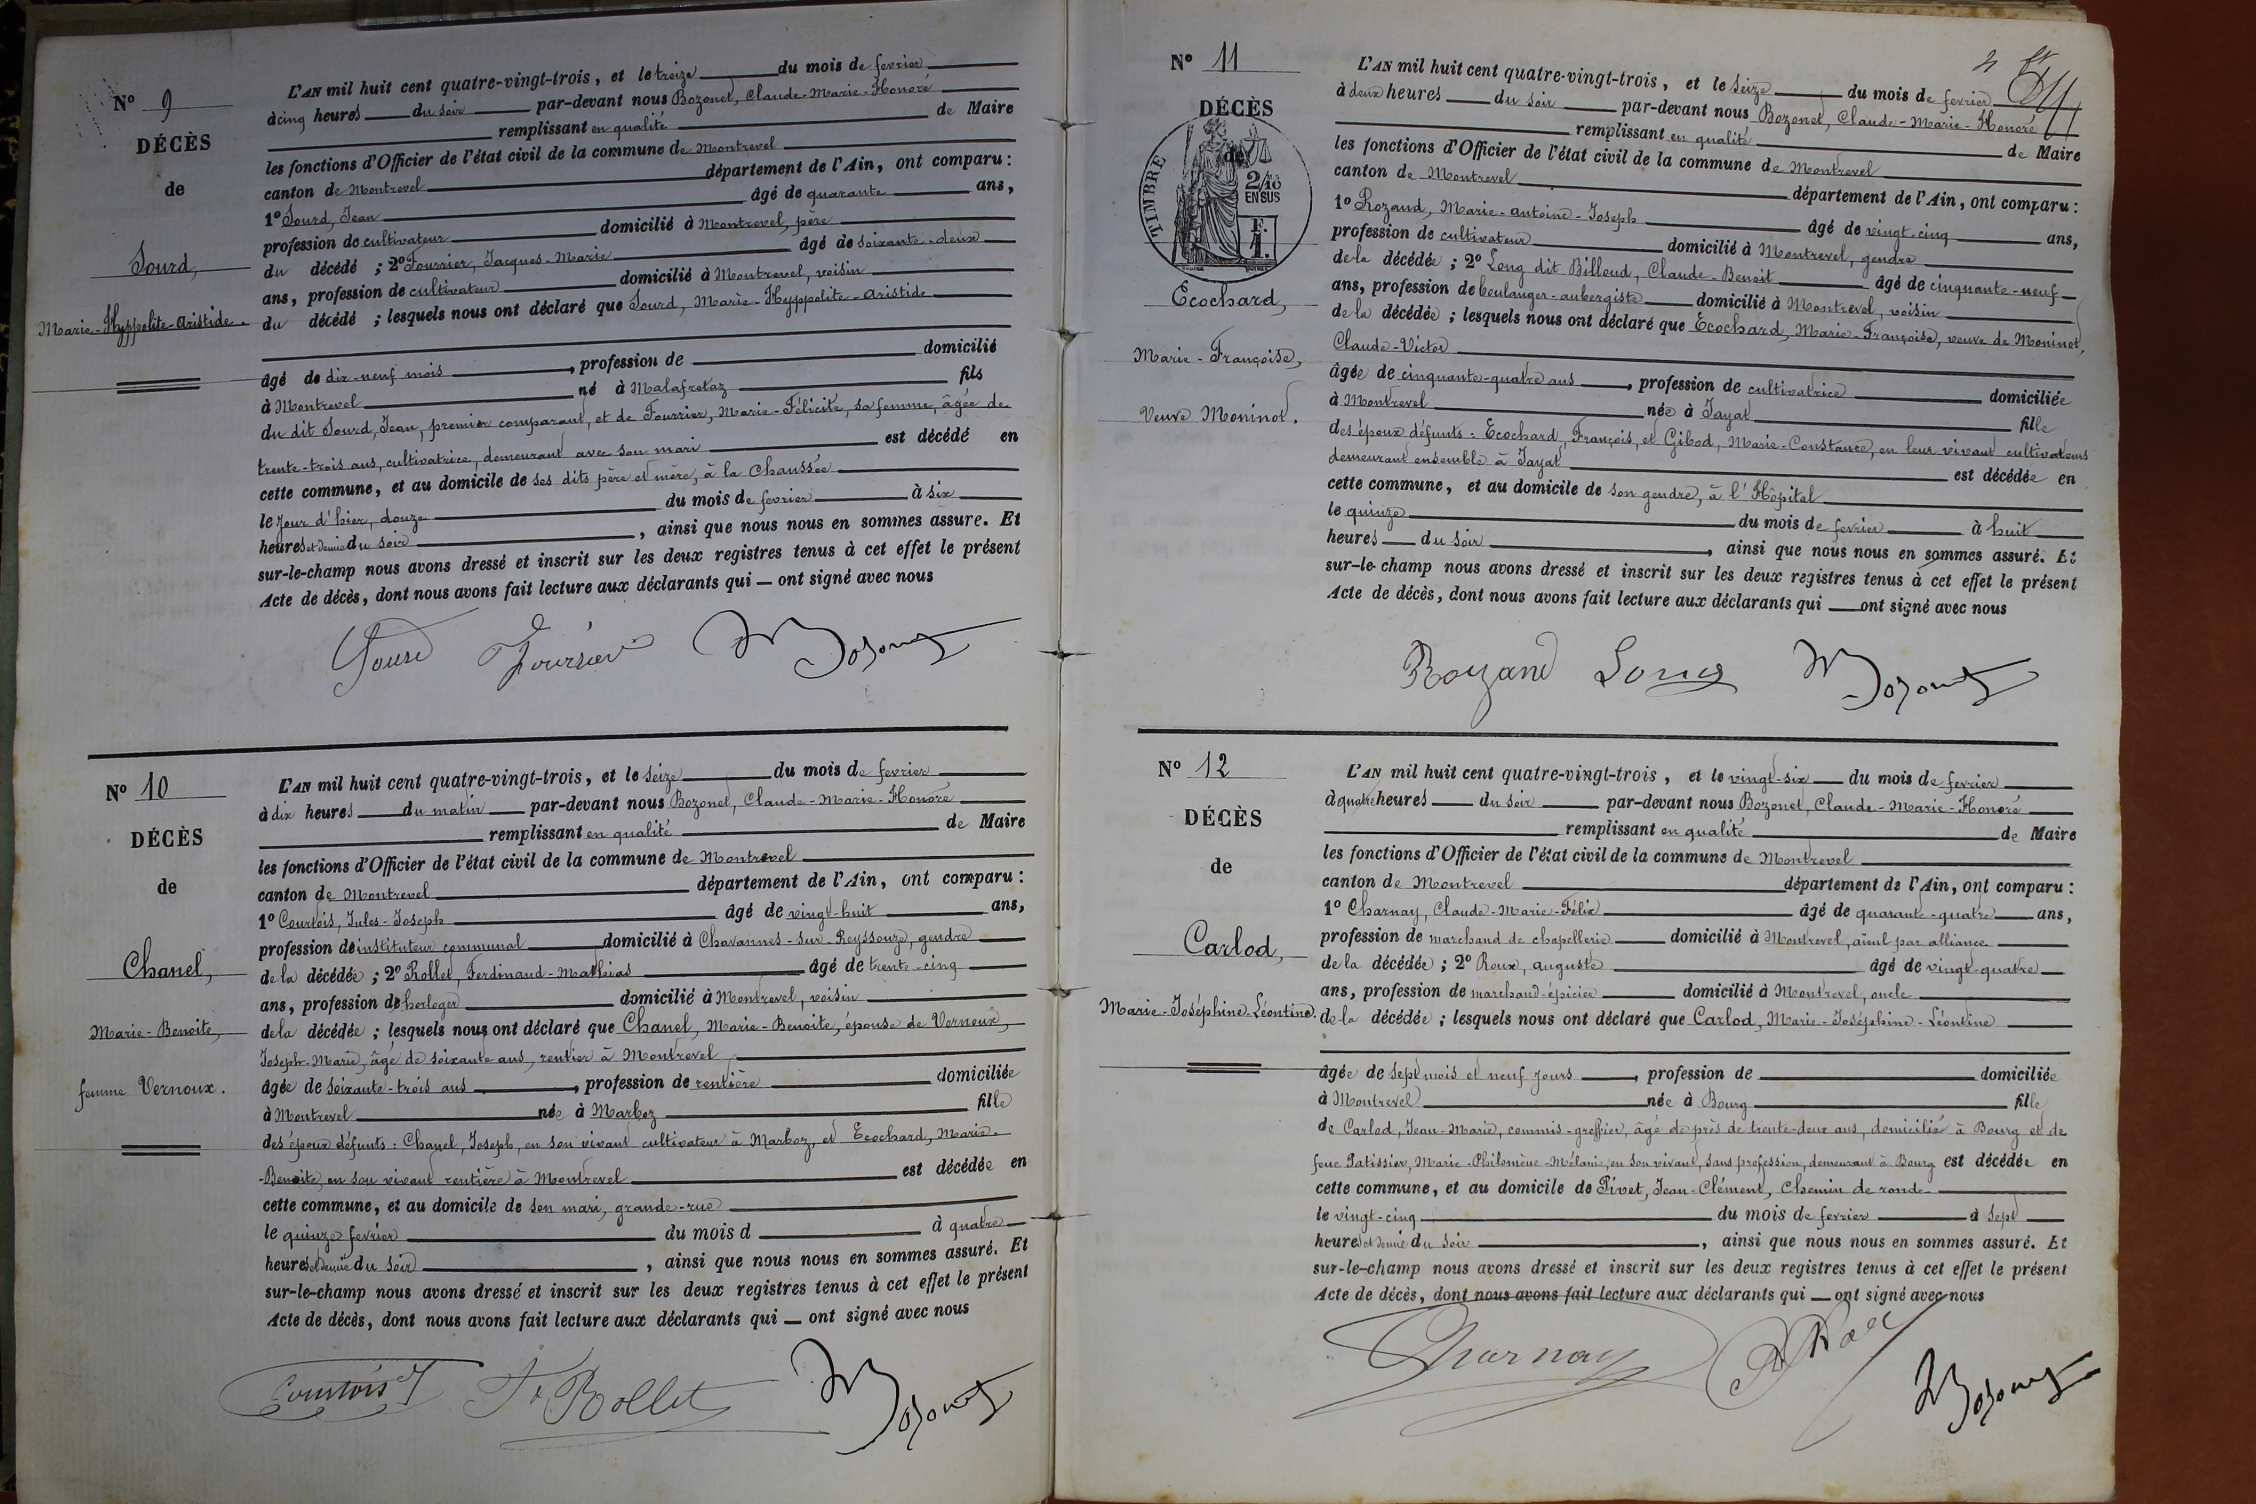 N° 9
DÉCÈS
de
Sourd,
Marie-Hyppolite-Aristide.
L'AN mil huit cent quatre-vingt-trois, et le treize du mois de fevrier
à cinq heures du soir par-devant nous Bozonet, Claude-Marie-Honoré
remplissant en qualité de Maire
les fonctions d'Officier de l'état civil de la commune de Montrevel
canton de Montrevel département de l'Ain, ont comparu :
1° Sourd, Jean âgé de quarante ans,
profession de cultivateur domicilié à Montrevel, père
du décédé ; 2° Fourrier, Jacques-Marie âgé de soixante-deux
ans, profession de cultivateur domicilié à Montrevel, voisin
du décédé ; lesquels nous ont déclaré que Sourd, Marie-Hyppolite-Aristide
âgé de dix-neuf mois, profession de domicilié
à Montrevel né à Malafretaz fils
du dit Sourd, Jean, premier comparant, et de Fourrier, Marie-Félicité, sa femme, âgée de
trente-trois ans, cultivatrice, demeurant avec son mari est décédé en
cette commune, et au domicile de ses dits père et mère, à la Chaussée
le jour d'hier, douze du mois de fevrier à six
heures et demie du soir, ainsi que nous nous en sommes assuré. Et
sur-le-champ nous avons dressé et inscrit sur les deux registres tenus à cet effet le présent
Acte de décès, dont nous avons fait lecture aux déclarants qui — ont signé avec nous
Sourd Fourrier Bozonet
N° 10
DÉCÈS
de
Chanel,
Marie-Benoite,
femme Vernoux.
L'AN mil huit cent quatre-vingt-trois, et le seize du mois de fevrier
à dix heures du matin par-devant nous Bozonet, Claude-Marie-Honoré
remplissant en qualité de Maire
les fonctions d'Officier de l'état civil de la commune de Montrevel
canton de Montrevel département de l'Ain, ont comparu :
1° Courtois, Jules-Joseph âgé de vingt-huit ans,
profession de instituteur communal domicilié à Chavannes-sur-Reyssouze, gendre
de la décédée ; 2° Rollet, Ferdinand-Mathias âgé de trente-cinq
ans, profession de horloger domicilié à Montrevel, voisin
de la décédée ; lesquels nous ont déclaré que Chanel, Marie-Benoite, épouse de Vernoux,
Joseph-Marie, âgé de soixante ans, rentier à Montrevel,
âgée de soixante-trois ans, profession de rentière domiciliée
à Montrevel née à Marboz fille
des époux défunts : Chanel, Joseph, en son vivant cultivateur à Marboz, et Ecochard, Marie-
-Benoite, en son vivant rentière à Montrevel est décédée en
cette commune, et au domicile de son mari, grande-rue
le quinze fevrier du mois d à quatre
heures et demie du soir, ainsi que nous nous en sommes assuré. Et
sur-le-champ nous avons dressé et inscrit sur les deux registres tenus à cet effet le présent
Acte de décès, dont nous avons fait lecture aux déclarants qui — ont signé avec nous
Courtois J F. Rollet Bozonet
N° 11
DÉCÈS
de
TIMBRE
2/10
EN SUS
F.
1.
Ecochard,
Marie-Françoise,
Veuve Moninot.
L'AN mil huit cent quatre-vingt-trois, et le seize du mois de fevrier
à deux heures du soir par-devant nous Bozonet, Claude-Marie-Honoré
remplissant en qualité de Maire
les fonctions d'Officier de l'état civil de la commune de Montrevel
canton de Montrevel département de l'Ain, ont comparu :
1° Rozand, Marie-Antoine-Joseph âgé de vingt-cinq ans,
profession de cultivateur domicilié à Montrevel, gendre
de la décédée ; 2° Long dit Billoud, Claude-Benoit âgé de cinquante-neuf
ans, profession de boulanger-aubergiste domicilié à Montrevel, voisin
de la décédée ; lesquels nous ont déclaré que Ecochard, Marie-Françoise, veuve de Moninot,
Claude-Victor
âgée de cinquante-quatre ans, profession de cultivatrice domiciliée
à Montrevel née à Jayat fille
des époux défunts : Ecochard, François, et Gibod, Marie-Constance, en leur vivant cultivateurs
demeurant ensemble à Jayat est décédée en
cette commune, et au domicile de son gendre, à l'Hôpital
le quinze du mois de fevrier à huit
heures du soir, ainsi que nous nous en sommes assuré. Et
sur-le-champ nous avons dressé et inscrit sur les deux registres tenus à cet effet le présent
Acte de décès, dont nous avons fait lecture aux déclarants qui — ont signé avec nous
Rozand Long Bozonet
N° 12
DÉCÈS
de
Carlod,
Marie-Joséphine-Léontine.
L'AN mil huit cent quatre-vingt-trois, et le vingt-six du mois de fevrier
à quatre heures du soir par-devant nous Bozonet, Claude-Marie-Honoré
remplissant en qualité de Maire
les fonctions d'Officier de l'état civil de la commune de Montrevel
canton de Montrevel département de l'Ain, ont comparu :
1° Charnay, Claude-Marie-Félix âgé de quarante-quatre ans,
profession de marchand de chapellerie domicilié à Montrevel, aïeul par alliance
de la décédée ; 2° Roux, Auguste âgé de vingt-quatre
ans, profession de marchand-épicier domicilié à Montrevel, oncle
de la décédée ; lesquels nous ont déclaré que Carlod, Marie-Joséphine-Léontine
âgée de sept mois et neuf jours, profession de domiciliée
à Montrevel née à Bourg fille
de Carlod, Jean-Marie, commis-greffier, âgé de près de trente-deux ans, domicilié à Bourg et de
feue Patissier, Marie-Philomène-Mélanie, en son vivant, sans profession, demeurant à Bourg est décédée en
cette commune, et au domicile de Pivet, Jean-Clément, Chemin de ronde
le vingt-cinq du mois de fevrier à sept
heures et demie du soir, ainsi que nous nous en sommes assuré. Et
sur-le-champ nous avons dressé et inscrit sur les deux registres tenus à cet effet le présent
Acte de décès, dont nous avons fait lecture aux déclarants qui — ont signé avec nous
Charnay A Roux Bozonet